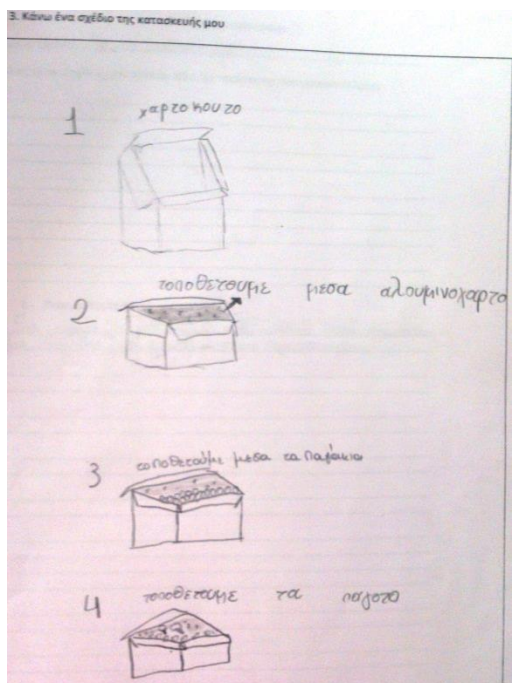 3. Κάνω ένα σχέδιο της κατασκευής μου
1 χαρτοκουτο
2 τοποθετουμε μεσα αλουμινοχαρτο
3 τοποθετούμε μεσα τα παγάκια
4 τοποθετουμε τα παγοτα